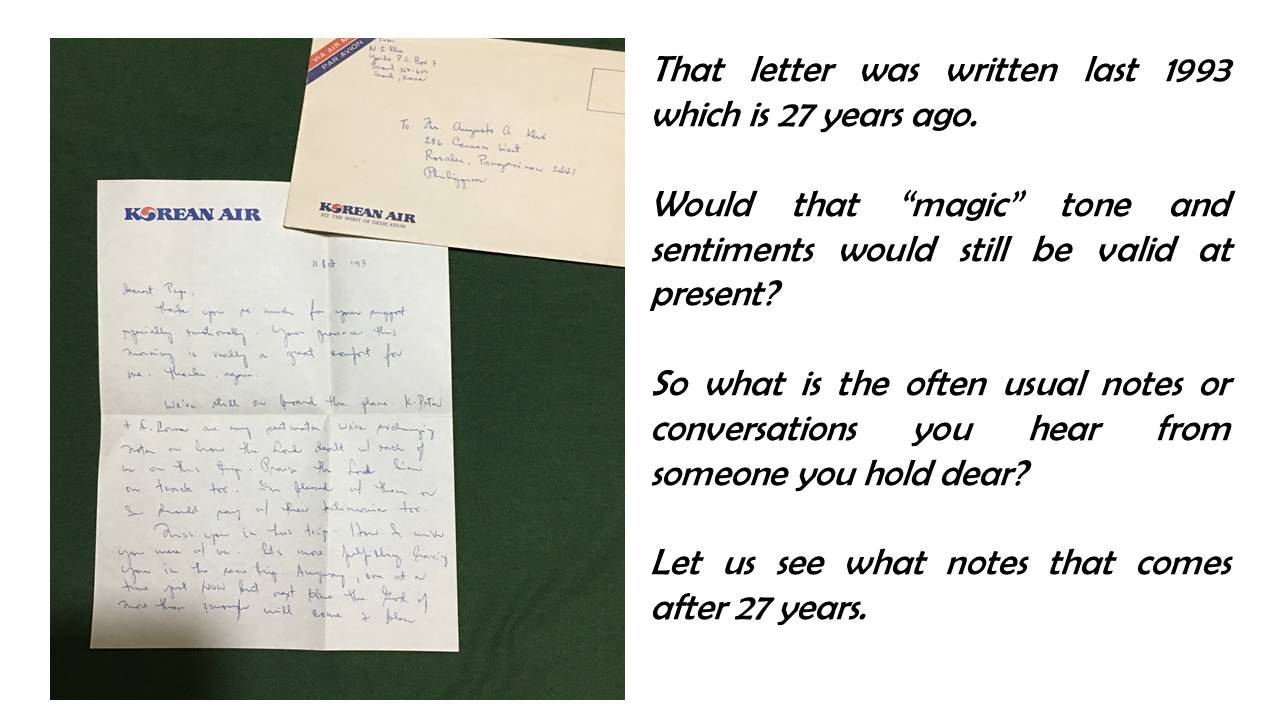 VIA AIR M
PAR AVION
N I
P.O. Box 7
Seoul
Seoul, Korea
To: Mr. Augusto A
286 Carmen West
Rosales, Pangasinan 2441
Philippines
KOREAN AIR
FLY THE SPIRIT OF DEDICATION
KOREAN AIR
'93
Dearest
Thank you so much for your support
especially emotionally. Your presence this
morning is really a great comfort for
me. Thanks again.
We're still on board the plane. K. Peter
& A. are my seatmates. We're exchanging
notes on how the Lord dealt w/ each of
us on this trip. Praise the Lord
on track too. I'm pleased w/ them or
I should say w/ their testimonies too.
Miss you in this trip. How I wish
you were w/ us. It's more fulfilling having
you in the same trip. Anyway, one at a
time just NOW but next time the God of
more than enough will come &
That letter was written last 1993
which is 27 years ago.
Would that “magic” tone and
sentiments would still be valid at
present?
So what is the often usual notes or
conversations you hear from
someone you hold dear?
Let us see what notes that comes
after 27 years.